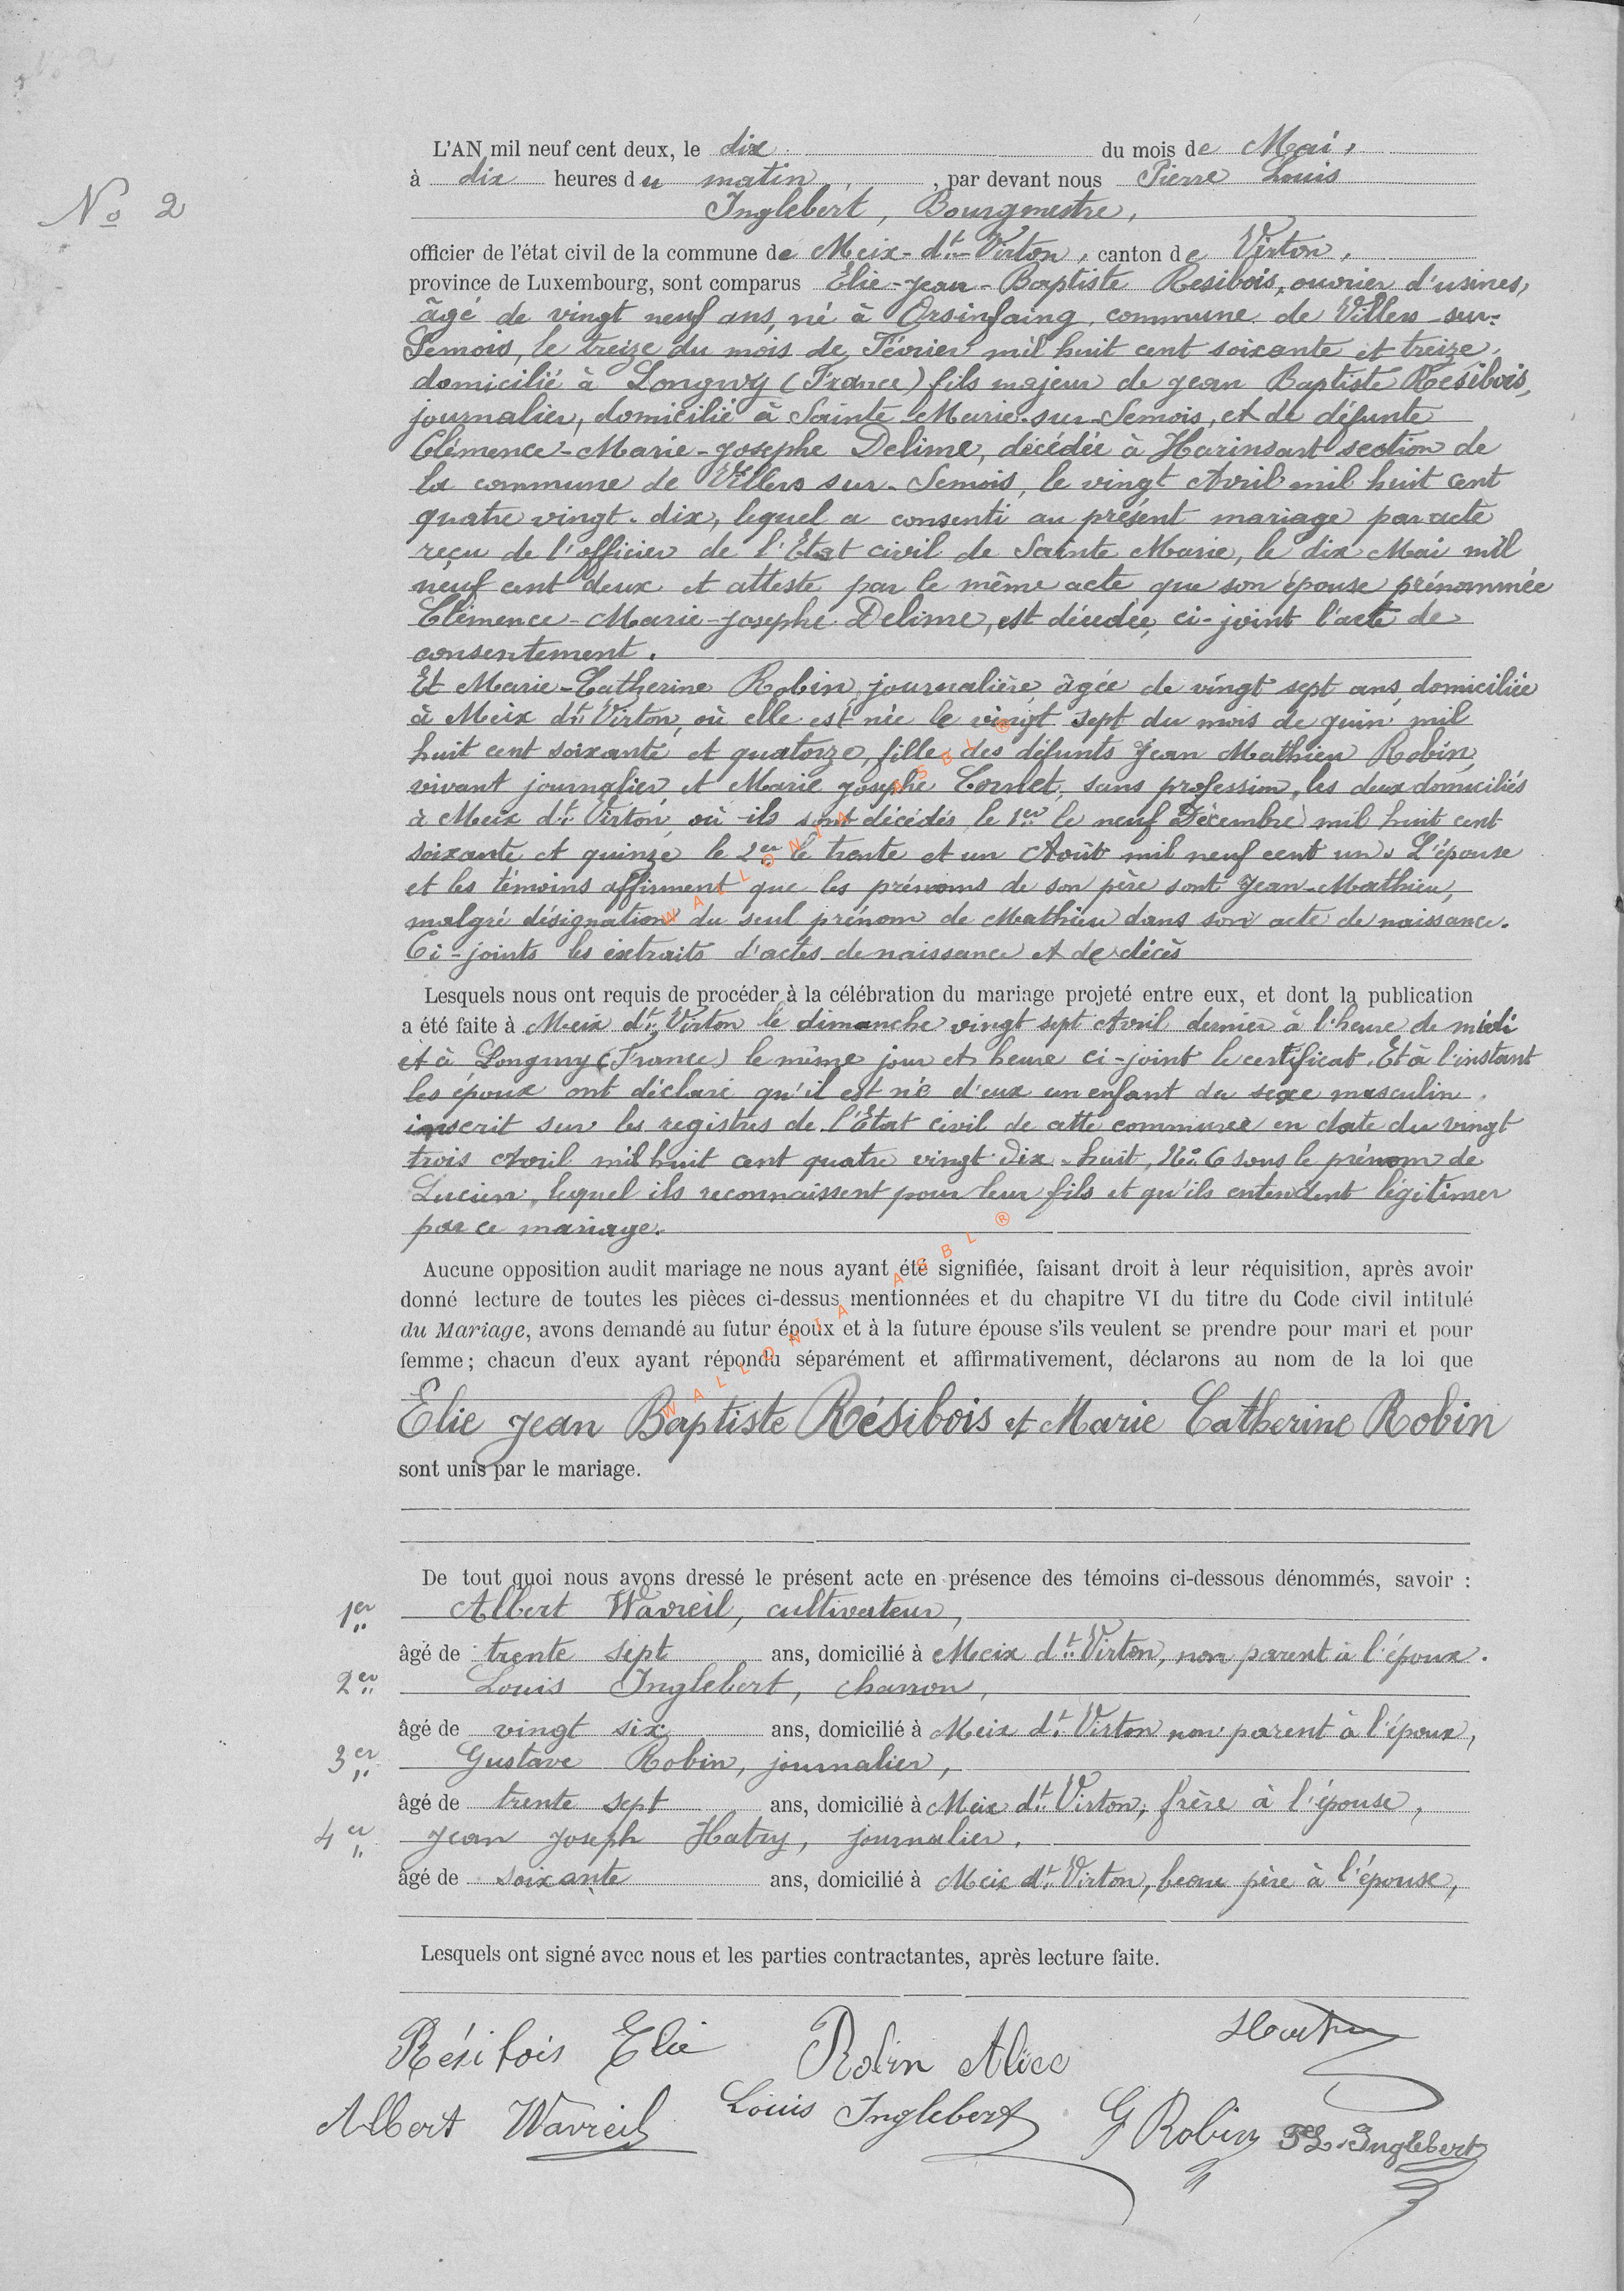 N° 2
L'AN mil neuf cent deux, le dix du mois de Mai,
à dix heures du matin, par devant nous Pierre Louis
Inglebert, Bourgmestre,
officier de l'état civil de la commune de Meix-dt-Virton, canton de Virton,
province de Luxembourg, sont comparus Elie-Jean-Baptiste Resibois, ouvrier d'usines,
âgé de vingt neuf ans, né à Orsinfaing, commune de Villers sur-
Semois, le treize du mois de Février mil huit cent soixante et treize,
domicilié à Longwy (France) fils majeur de Jean Baptiste Résibois,
journalier, domicilié à Sainte Marie-sur-Semois, et de défunte
Clémence-Marie-Josephe Delime, décédée à Harinsart section de
la commune de Villers sur-Semois, le vingt Avril mil huit cent
quatre vingt-dix, lequel a consenti au présent mariage par acte
reçu de l'officier de l'Etat civil de Sainte Marie, le dix Mai mil
neuf cent deux et atteste par le même acte que son épouse prénommée
Clémence-Marie-Josephe Delime, est décédée, ci-joint l'acte de
consentement.
Et Marie-Catherine Robin, journalière, âgée de vingt sept ans, domiciliée
à Meix dt Virton, où elle est née le vingt sept du mois de juin mil
huit cent soixante et quatorze, fille des défunts Jean Mathieu Robin,
vivant journalier et Marie Josephe Cornet, sans profession, les deux domiciliés
à Meix dt Virton, où ils sont décédés le 1er le neuf Décembre mil huit cent
soixante et quinze le 2er le trente et un Août mil neuf cent un. L'épouse
et les témoins affirment que les prénoms de son père sont Jean-Mathieu,
malgré désignation du seul prénom de Mathieu dans son acte de naissance.
Ci-joints les extraits d'actes de naissance et de décès
Lesquels nous ont requis de procéder à la célébration du mariage projeté entre eux, et dont la publication
a été faite à Meix dt Virton le dimanche vingt sept Avril dernier à l'heure de midi
et à Longwy (France) le même jour et heure ci-joint le certificat. Et à l'instant
les époux ont déclaré qu'il est né d'eux un enfant du sexe masculin
inscrit sur les registres de l'État civil de cette commune en date du vingt
trois Avril mil huit cent quatre vingt dix-huit, N° 6 sous le prénom de
Lucien, lequel ils reconnaissent pour leur fils et qu'ils entendent légitimer
par ce mariage.
Aucune opposition audit mariage ne nous ayant été signifiée, faisant droit à leur réquisition, après avoir
donné lecture de toutes les pièces ci-dessus mentionnées et du chapitre VI du titre du Code civil intitulé
du Mariage, avons demandé au futur époux et à la future épouse s'ils veulent se prendre pour mari et pour
femme; chacun d'eux ayant répondu séparément et affirmativement, déclarons au nom de la loi que
Elie Jean Baptiste Résibois et Marie Catherine Robin
sont unis par le mariage.
De tout quoi nous avons dressé le présent acte en présence des témoins ci-dessous dénommés, savoir :
1er Albert Wavreil, cultivateur,
âgé de trente sept ans, domicilié à Meix dt Virton, non parent à l'époux.
2er Louis Inglebert, charron,
âgé de vingt six ans, domicilié à Meix dt Virton non parent à l'époux,
3er Gustave Robin, journalier,
âgé de trente sept ans, domicilié à Meix dt Virton, frère à l'épouse,
4er Jean Joseph Hatry, journalier,
âgé de soixante ans, domicilié à Meix dt Virton, beau père à l'épouse,
Lesquels ont signé avec nous et les parties contractantes, après lecture faite.
Résibois Elie Robin Alice Hatry
Albert Wavreil Louis Inglebert G Robin PL. Inglebert
WALLONIA ASBL ®
WALLONIA ASBL ®